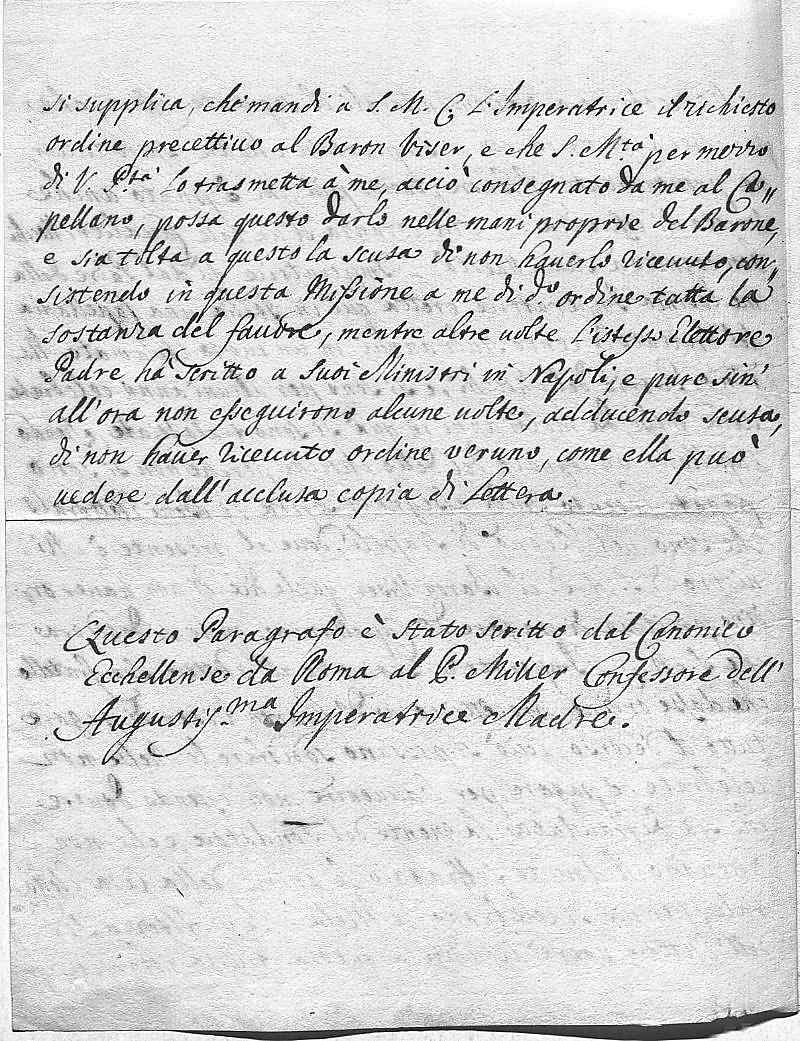 si supplica, che mandi a S. M. C. L'Imperatrice il richiesto
ordine precettivo al Baron Viser, e che S. M.tà per mezzo
di V. P.tà lo trasmetta à me, acciò consegnato da me al Ca„
pellano, possa questo darlo nelle mani proprie del Barone,
e sia tolta a questo la scusa di non haverlo ricevuto, con„
sistendo in questa Missione a me di d.o ordine tutta la
sostanza del favore, mentre altre volte l'istesso Elettore
Padre hà scritto a suoi Ministri in Napoli, e pure sin'
all'ora non esseguirono alcune volte, adducendo scusa,
di non haver ricevuto ordine veruno, come ella può
vedere dall'acclusa copia di Lettera.
Questo Paragrafo è stato scritto dal Canonico
Ecchellense da Roma al P. Miller Confessore dell'
Augustiss.ma Imperatrice Madre.